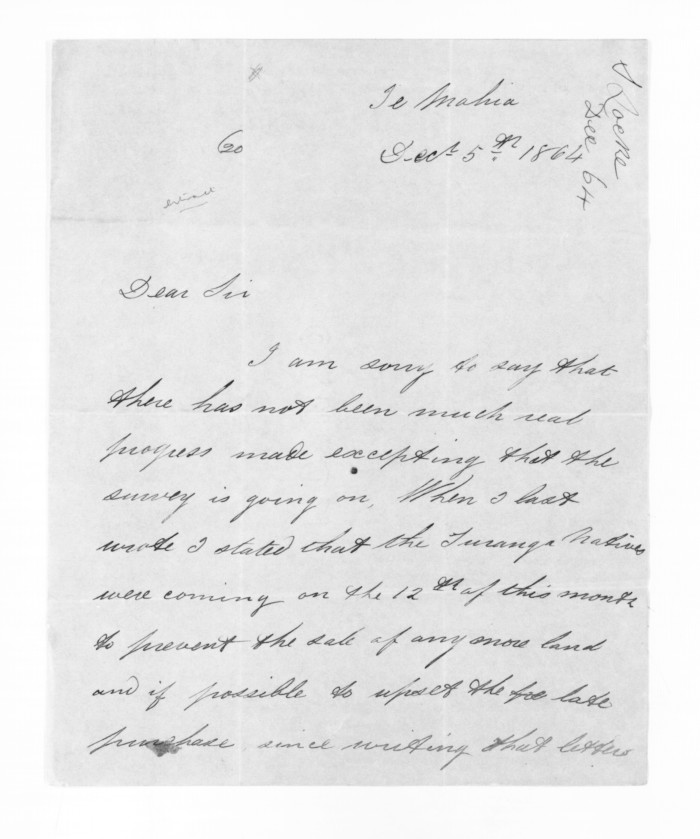 Te Mahia
Decr 5th 1864
S Locke
Dec 64
60
extract
Dear Sir
I am sorry to say that
there has not been much real
progress made excepting that the
survey is going on, When I last
wrote I stated that the Turanga Natives
were coming on the 12th of this month
to prevent the sale of any more land
and if possible to upset the late
purchase since writing that letters